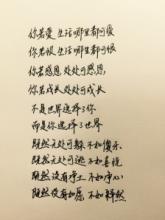 你若爱 生活哪里都可爱
你若恨 生活哪里都可恨
你若感恩 处处可感恩
你若成长 处处可成长
不是世界选择了你
而是你选择了世界
既然无处可躲 不如傻乐
既然无处可逃 不如喜悦
既然没有净土 不如静心
既然没有如愿 不如释然